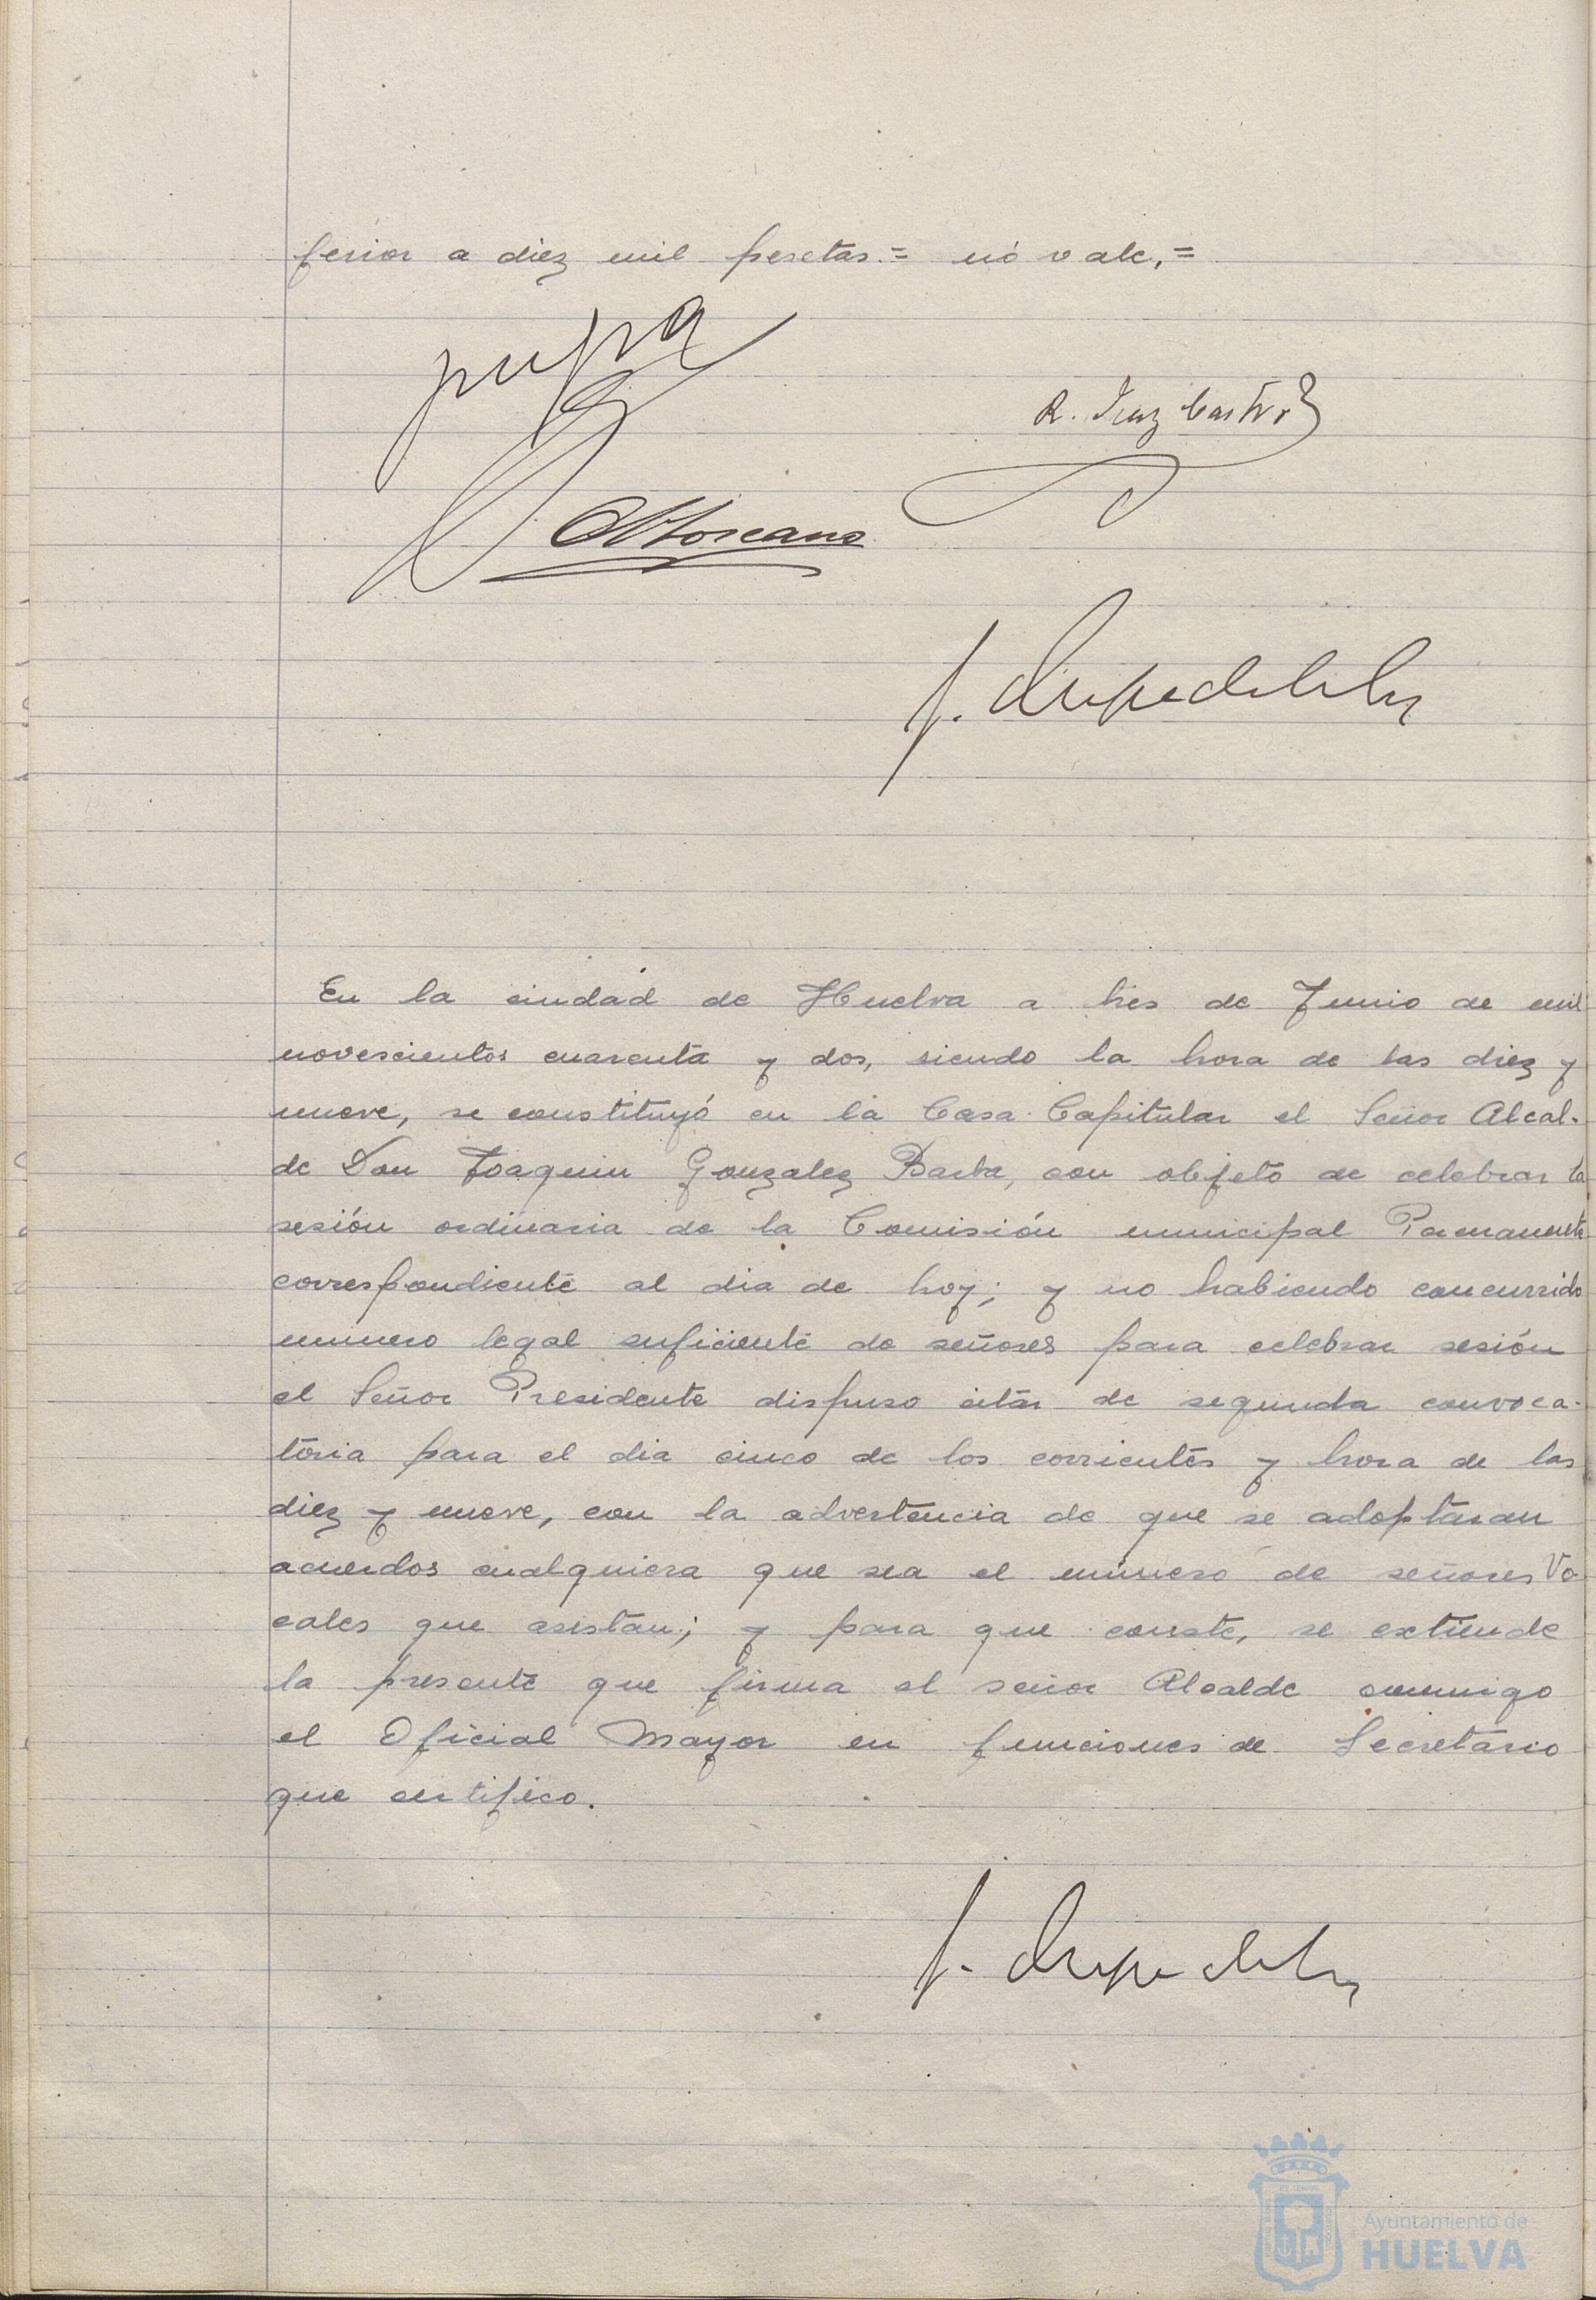 ferior a diez mil pesetas.= nó vale,=
R. Diaz Castro
Toscano
En la ciudad de Huelva a tres de Junio de mil
novescientos cuarenta y dos, siendo la hora de las diez y
nueve, se constituyó en la Casa Capitular el Señor Alcal-
de Don Joaquin Gonzalez Barba, con objeto de celebrar la
sesión ordinaria de la Comisión municipal Permanente
correspondiente al dia de hoy; y no habiendo concurrido
numero legal suficiente de señores para celebrar sesión
el Señor Presidente dispuso citar de segunda convoca-
toria para el dia cinco de los corrientes y hora de las
diez y nueve, con la advertencia de que se adoptaran
acuerdos cualquiera que sea el número de señores Vo
cales que asistan; y para que conste, se extiende
la presente que firma el señor Alcalde conmigo
el Oficial Mayor en funciones de Secretario
que certifico.
Ayuntamiento de
HUELVA